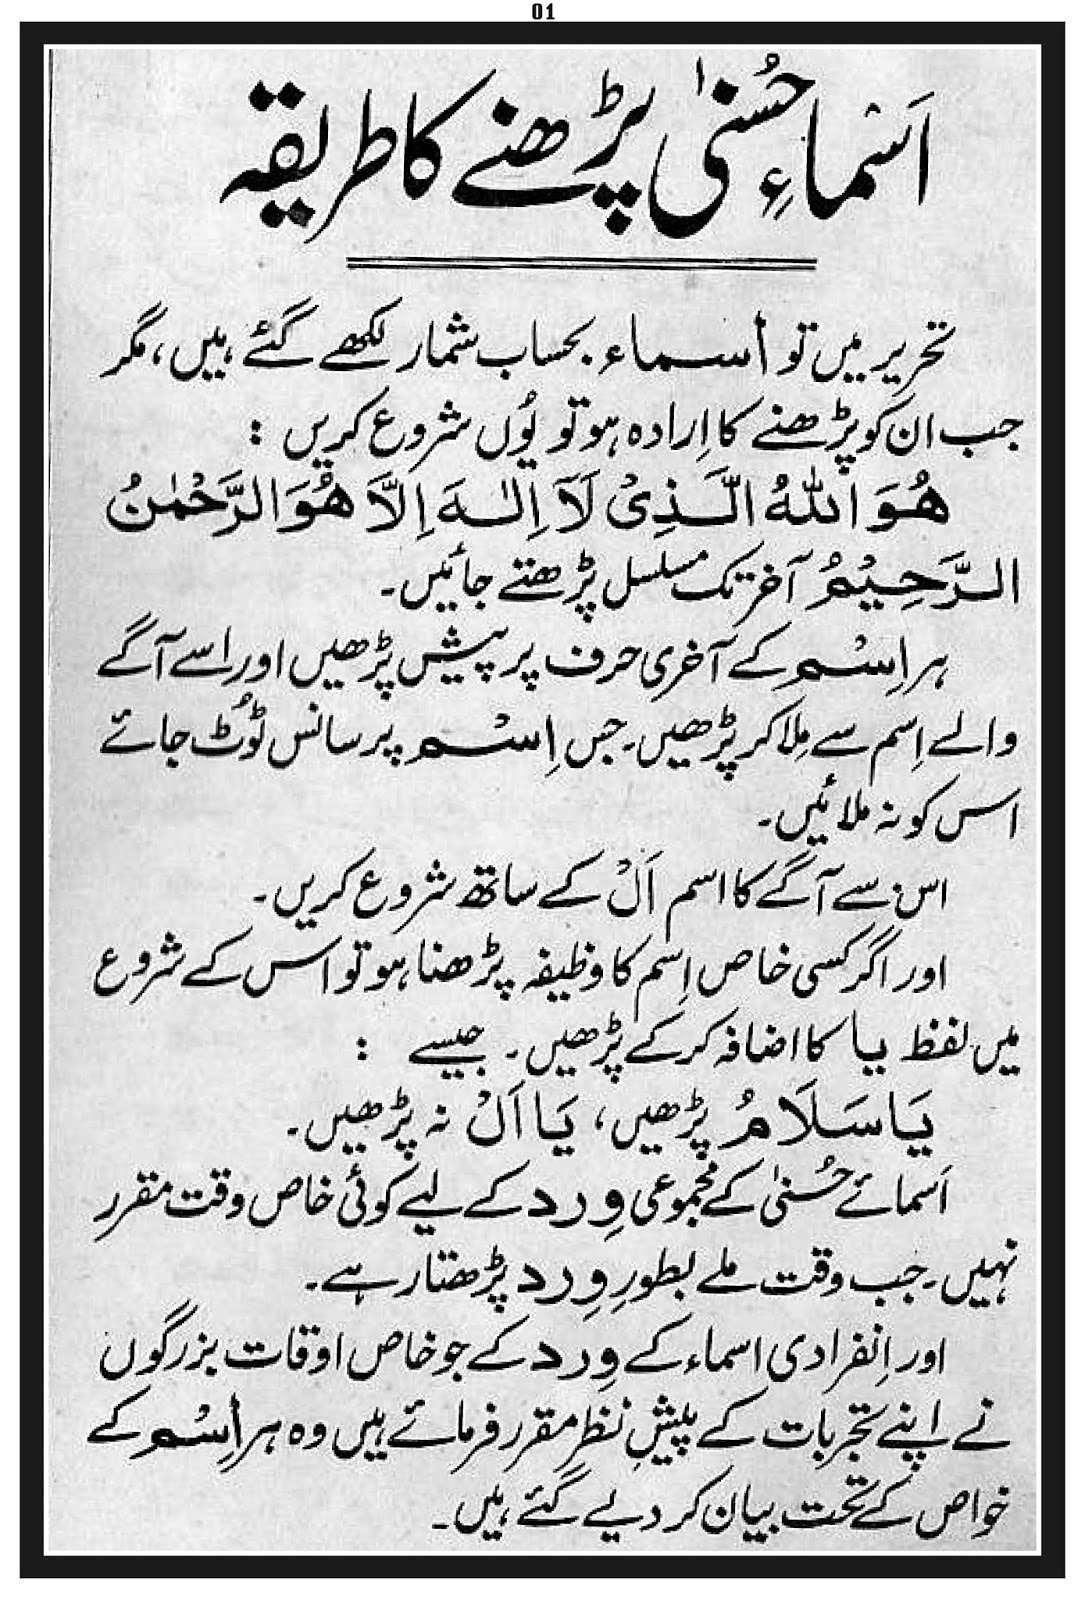 01
اَسْماءِ حُسنیٰ پڑھنے کا طریقہ
تحریر میں تو أسماء بحساب شمار لکھے گئے ہیں، مگر
جب ان کو پڑھنے کا اِرادہ ہو تو یُوں شروع کریں :
هُوَ اللّٰهُ الَّذِیْ لَآ اِلٰـهَ اِلَّا هُوَ الرَّحْمٰنُ
الرَّحِیْمُ آخر تک مسلسل پڑھتے جائیں۔
ہر اِسْمِ کے آخری حرف پر پیش پڑھیں اور اسے آگے
والے اِسم سے مِلا کر پڑھیں۔ جس اِسْم پر سانس ٹُوٹ جائے
اس کو نہ ملائیں۔
اس سے آگے کا اسم اَلْ کے ساتھ شروع کریں۔
اور اگر کسی خاص اِسم کا وظیفہ پڑھنا ہو تو اس کے شروع
میں لفظ یا کا اضافہ کر کے پڑھیں۔ جیسے :
یَا سَلَامُ پڑھیں، یَا اَلْ نہ پڑھیں۔
اَسمائے حُسنیٰ کے مجموعی وِرد کے لیے کوئی خاص وقت مقرر
نہیں۔ جب وقت ملے بطورِ وِرد پڑھتا رہے۔
اور اِنفرادی اسماء کے وِرد کے جو خاص اوقات بزرگوں
نے اپنے تجربات کے پیشِ نظر مقرر فرمائے ہیں وہ ہر اِسْم کے
خواص کے تحت بیان کر دیے گئے ہیں۔